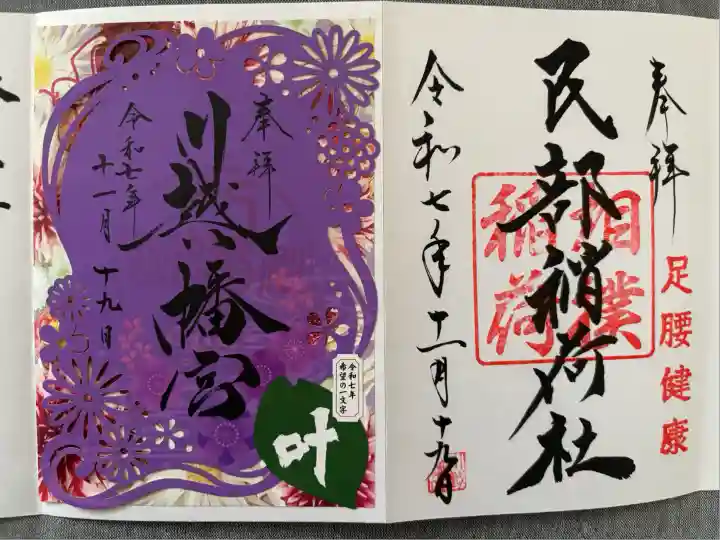 奉拝
川越八幡宮
令和七年
十一月十九日
令和七年
希望の一文字
叶
奉拝
足腰健康
民部稲荷社
相撲
稲荷
令和七年十一月十九日